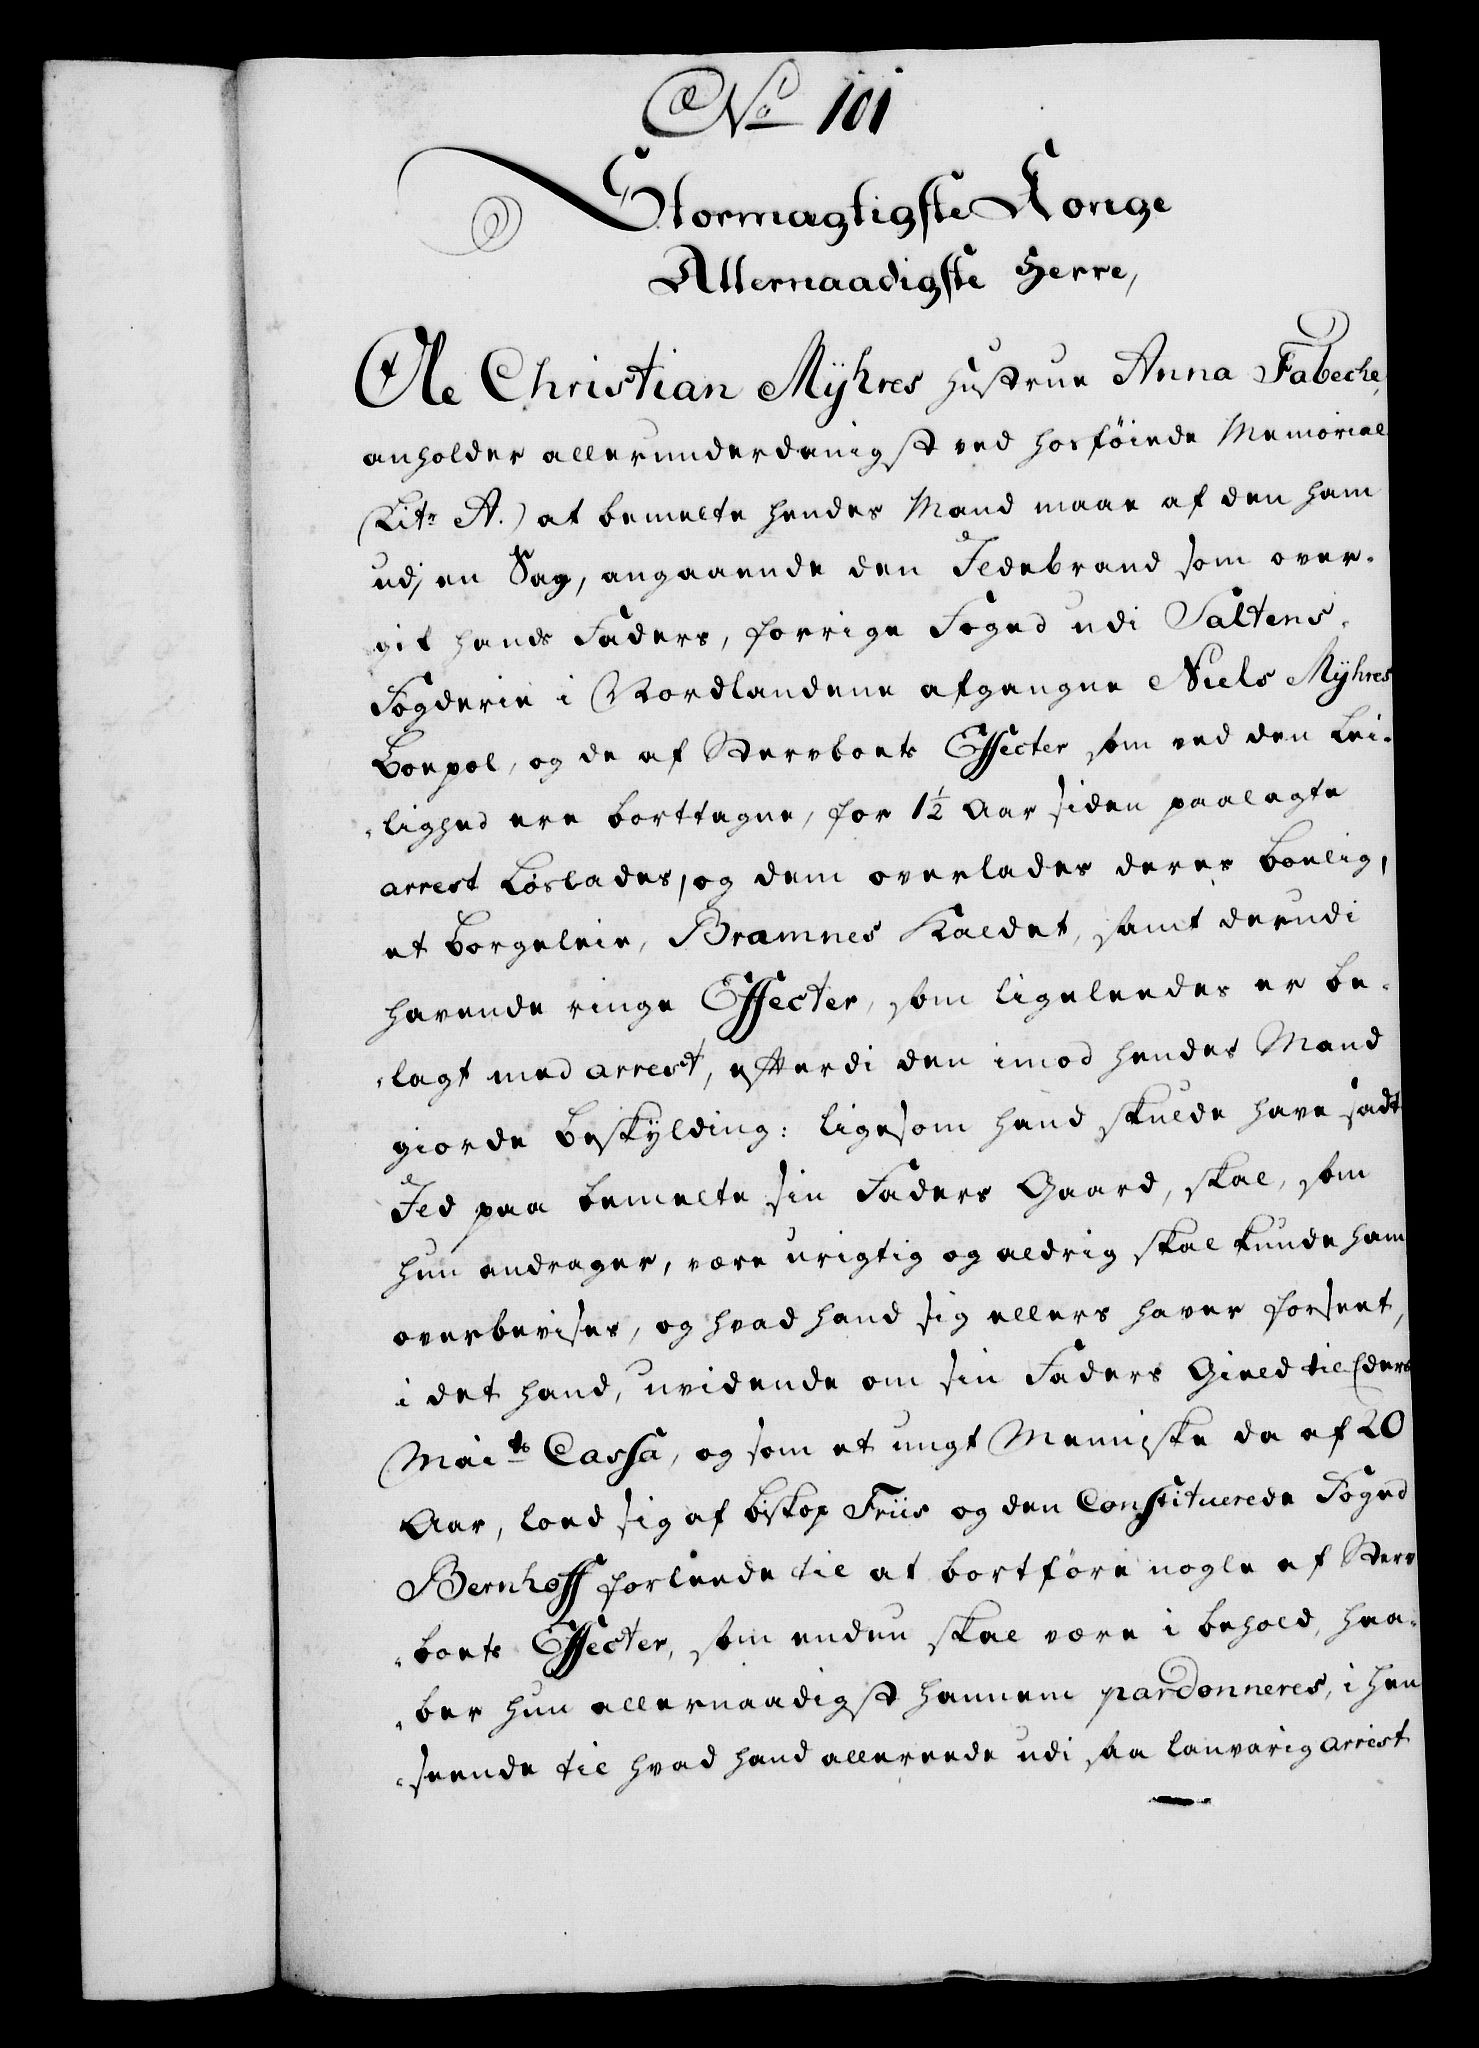 No 101
Stormægtigste Konge
Allernaadigste Herre,
Ole Christian Mÿhres Hustrue Anna Fabeche,
anholder allerunderdanigst ved hosföiede Memorial
(Litr A.) at bemelte hendes Mand maae af den ham
udj en Sag, angaaende den Ildebrand som over-
gik hands Faders, forrige Foged udi Saltens-
Fogderie i Nordlandene afgangne Niels Mÿhres
Boepæl, og de af Stervboets Effecter som ved den Lei-
lighed ere borttagne, for 1½ Aar siden paalagte
arrest Löslades, og dem overlades deres boelig,
et Borgeleie, Bramnes Kaldet, samt derudi
havende ringe Effecter, som ligeleedes er be-
lagt med arrest, efterdi den imod hendes Mand
giorde Beskÿlding: ligesom hand skulde have sadt
Ild paa bemelte sin Faders Gaard, skal, som
hun andrager, være urigtig og aldrig skal kunde ham
overbevises, og hvad hand sig ellers haver forseet,
i det hand, uvidende om sin Faders Gield til Eders
Maits Cassa, og som et ungt Menniske da af 20
Aar, loed sig af biskop Friis og den Constituerede Foged
Bernhoff forleede til at bortföre nogle af Sterv
boets Effecter, som endnu skal være i behold, haa-
ber hun allernaadigst hannem pardonneres, i hen
seende til hvad hand allereede udi saa lanvarig arrest